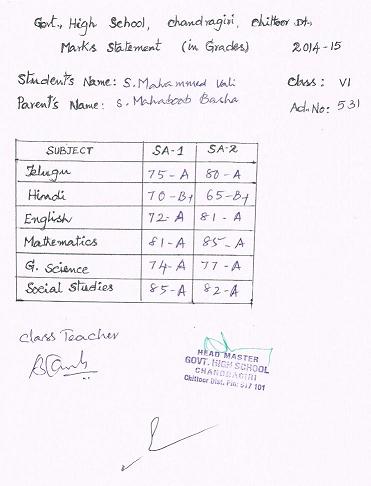 Govt., High School, chandragiri, chittoor Dt.,
Marks Statement (in Grades) 2014-15
Student's Name: S. Mahammed Vali class: VI
Parent's Name: S. Mahaboob Basha Ad.No: 531
SUBJECT SA-1 SA-2
Telugu 75-A 80-A
Hindi 70-B+ 65-B+
English 72-A 81-A
Mathematics 81-A 85-A
G. Science 74-A 77-A
Social Studies 85-A 82-A
class Teacher
HEAD MASTER
GOVT. HIGH SCHOOL
CHANDRAGIRI
Chittoor Dist. Pin: 517 101